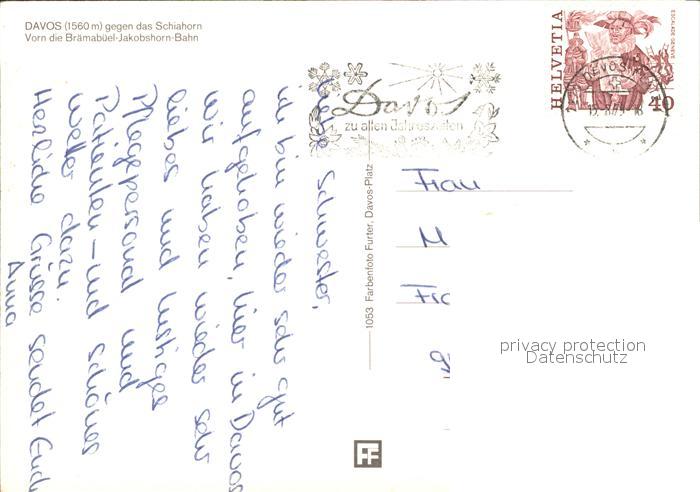 DAVOS (1560 m) gegen das Schiahorn
Vorn die Brämabüel-Jakobshorn-Bahn
HELVETIA
ESCALADE GENÈVE
40
DAVOS
Davos
zu allen Jahreszeiten
Liebe Schwester,
ich bin wieder sehr gut
aufgehoben, hier in Davos
wir haben wieder sehr
liebes und lustiges
Pflegepersonal und
Patienten - und schönes
Wetter dazu.
Herzliche Grüsse sendet Euch
Anna
1053 Farbenfoto Furter, Davos-Platz
Frau
M
Fr
FF
privacy protection
Datenschutz